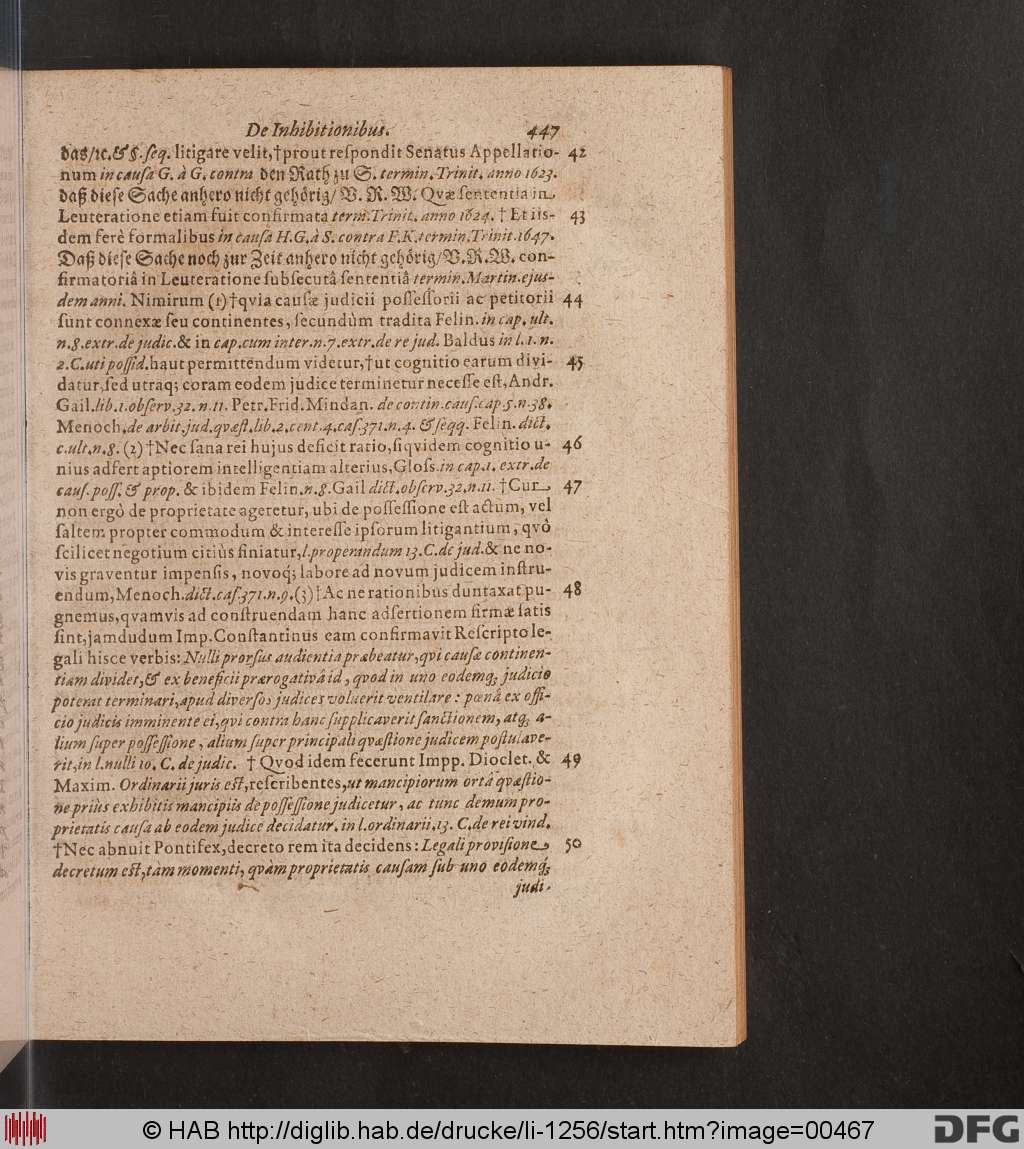 De Inhibitionibus. 447
das/ꝛc. & §. ſeq. litigare velit, †prout reſpondit Senatus Appellatio- 42
num in cauſa G. à G. contra den Rath zu S. termin. Trinit. anno 1623.
daß dieſe Sache anhero nicht gehörig/ V. R. W. Qvæ ſententia in
Leuteratione etiam fuit confirmata term. Trinit. anno 1624. † Et iis- 43
dem ferè formalibus in cauſa H. G. à S. contra F. K. termin. Trinit. 1647.
Daß dieſe Sache noch zur Zeit anhero nicht gehörig/ V. R. W. con-
firmatoriâ in Leuteratione ſubſecutâ ſententiâ termin. Martin. ejus-
dem anni. Nimirum (1) †qvia cauſæ judicii poſſeſſorii ac petitorii 44
ſunt connexæ ſeu continentes, ſecundùm tradita Felin. in cap. ult.
n. 8. extr. de judic. & in cap. cum inter. n. 7. extr. de re jud. Baldus in l. 1. n.
2. C. uti poſſid. haut permittendum videtur, †ut cognitio earum divi- 45
datur, ſed utraq; coram eodem judice terminetur neceſſe eſt, Andr.
Gail. lib. 1. obſerv. 32. n. 11. Petr. Frid. Mindan. de contin. cauſ. cap. 5. n. 38.
Menoch. de arbit. jud. qvæſt. lib. 2. cent. 4. caſ. 371. n. 4. & ſeqq. Felin. dict.
c. ult. n. 8. (2) †Nec ſana rei hujus deficit ratio, ſiqvidem cognitio u- 46
nius adfert aptiorem intelligentiam alterius, Gloſs. in cap. 1. extr. de
cauſ. poſſ. & prop. & ibidem Felin. n. 8. Gail dict. obſerv. 32. n. 11. †Cur 47
non ergò de proprietate ageretur, ubi de poſſeſſione eſt actum, vel
ſaltem propter commodum & intereſſe ipſorum litigantium, qvò
ſcilicet negotium citiùs finiatur, l. properandum 13. C. de jud. & ne no-
vis graventur impenſis, novoq; labore ad novum judicem inſtru-
endum, Menoch. dict. caſ. 371. n. 9. (3) † Ac ne rationibus duntaxat pu- 48
gnemus, qvamvis ad conſtruendam hanc adſertionem firmæ ſatis
ſint, jamdudum Imp. Conſtantinus eam confirmavit Reſcripto le-
gali hisce verbis: Nulli prorſus audientia præbeatur, qvi cauſæ continen-
tiam dividet, & ex beneficii prærogativâ id, qvod in uno eodemq; judicio
poterat terminari, apud diverſos judices voluerit ventilare: pœnâ ex offi-
cio judicis imminente ei, qvi contra hanc ſupplicaverit ſanctionem, atq; a-
lium ſuper poſſeſſione, alium ſuper principali qvæſtione judicem poſtulave-
rit, in l. nulli 10. C. de judic. † Qvod idem fecerunt Impp. Dioclet. & 49
Maxim. Ordinarii juris eſt, reſcribentes, ut mancipiorum ortâ qvæſtio-
ne priùs exhibitis mancipiis de poſſeſſione judicetur, ac tunc demum pro-
prietatis cauſa ab eodem judice decidatur. in l. ordinarii. 13. C. de rei vind.
†Nec abnuit Pontifex, decreto rem ita decidens: Legali proviſione 50
decretum eſt, tàm momenti, qvàm proprietatis cauſam ſub uno eodemq;
judi-
© HAB http://diglib.hab.de/drucke/li-1256/start.htm?image=00467
DFG